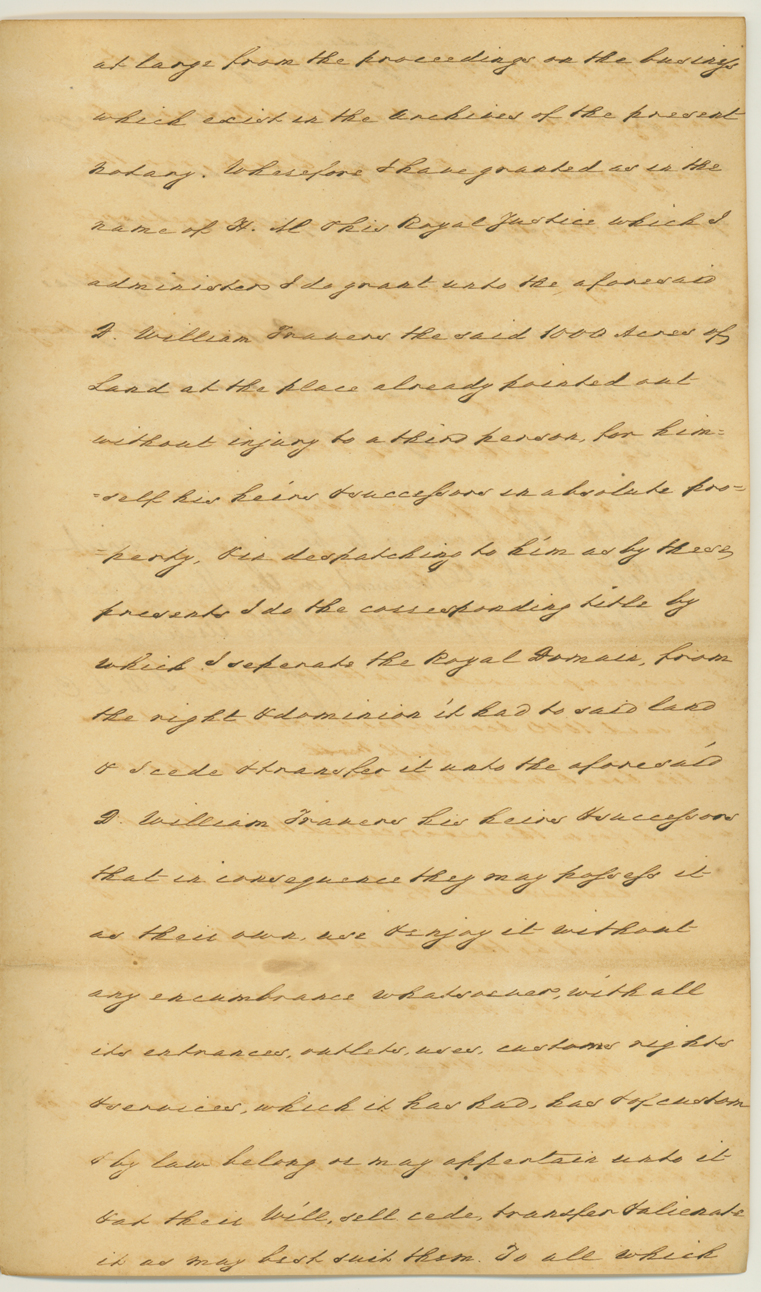 at large from the proceedings on the business
which exist in the Archives of the present
Notary. Wherefore I have granted as in the
name of H. M & his Royal Justice which I
administer I do grant unto the aforesaid
D. William Travers the said 1000 Acres of
Land at the place already pointed out
without injury to a third person, for him=
=self his heirs & successors in absolute pro=
=perty, & in despatching to him as by these
presents I do the corresponding title by
which I seperate the Royal Domain, from
the right & dominion it had to said land
& I cede & transfer it unto the aforesaid
D. William Travers his heirs & successors
that in consequence they may possess it
as their own, use & enjoy it without
any encumbrance whatsoever, with all
its entrances, outlets, uses, customs rights
& services, which it has had, has & of custom
& by law belong or may appertain unto it
& at their Will, sell cede, transfer & alienate
it as may best suit them. To all which